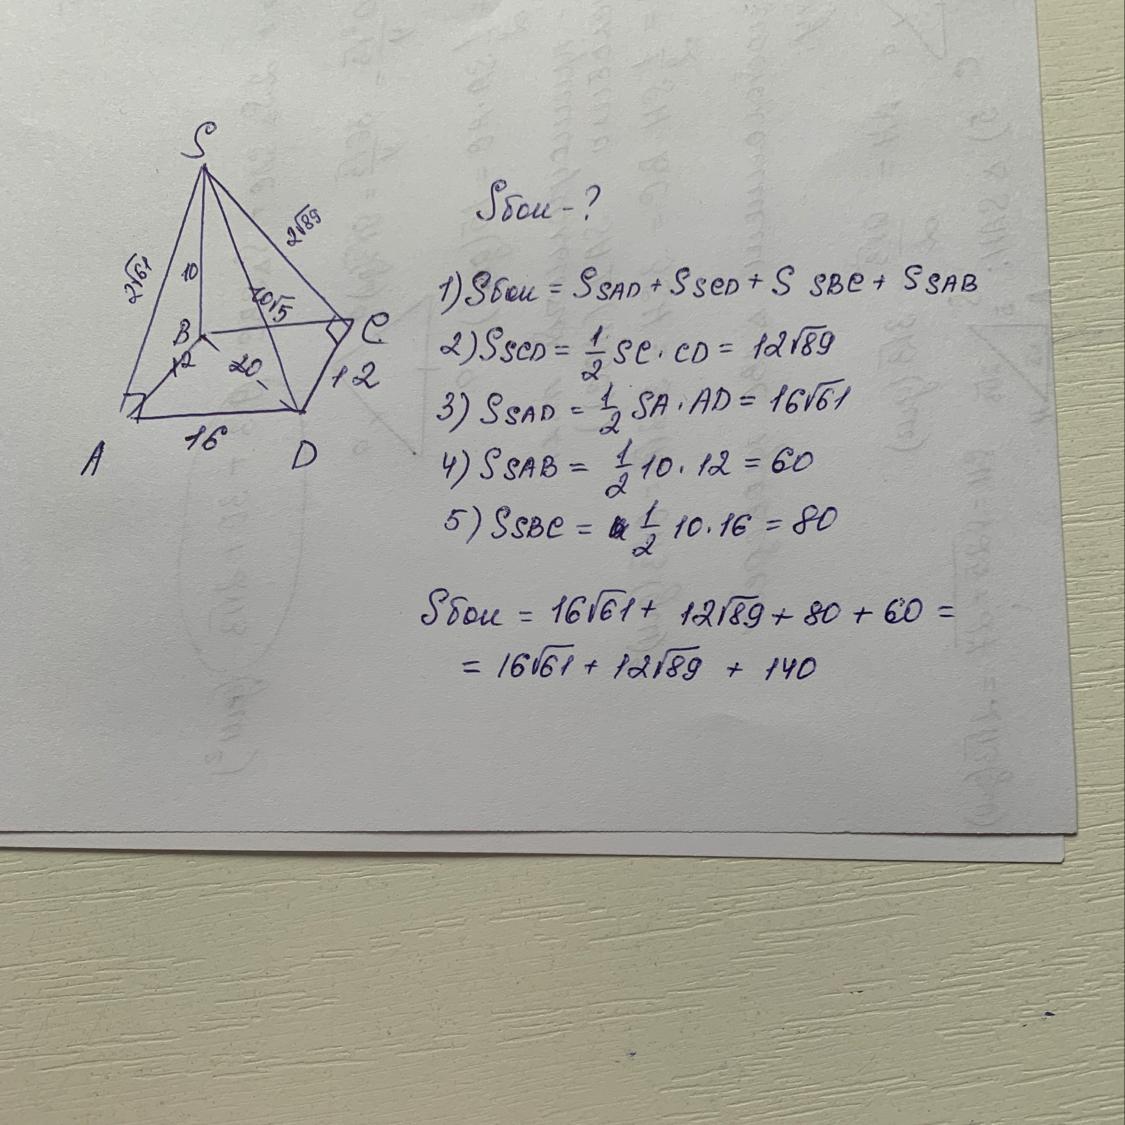 S
2√61
10
2√89
10√5
B
C
12
20
12
16
A
D
Sбок - ?
1) Sбок = S SAD + S SCD + S SBC + S SAB
2) S SCD = 1/2 SC · CD = 12√89
3) S SAD = 1/2 SA · AD = 16√61
4) S SAB = 1/2 10 · 12 = 60
5) S SBC = 1/2 10 · 16 = 80
Sбок = 16√61 + 12√89 + 80 + 60 =
= 16√61 + 12√89 + 140